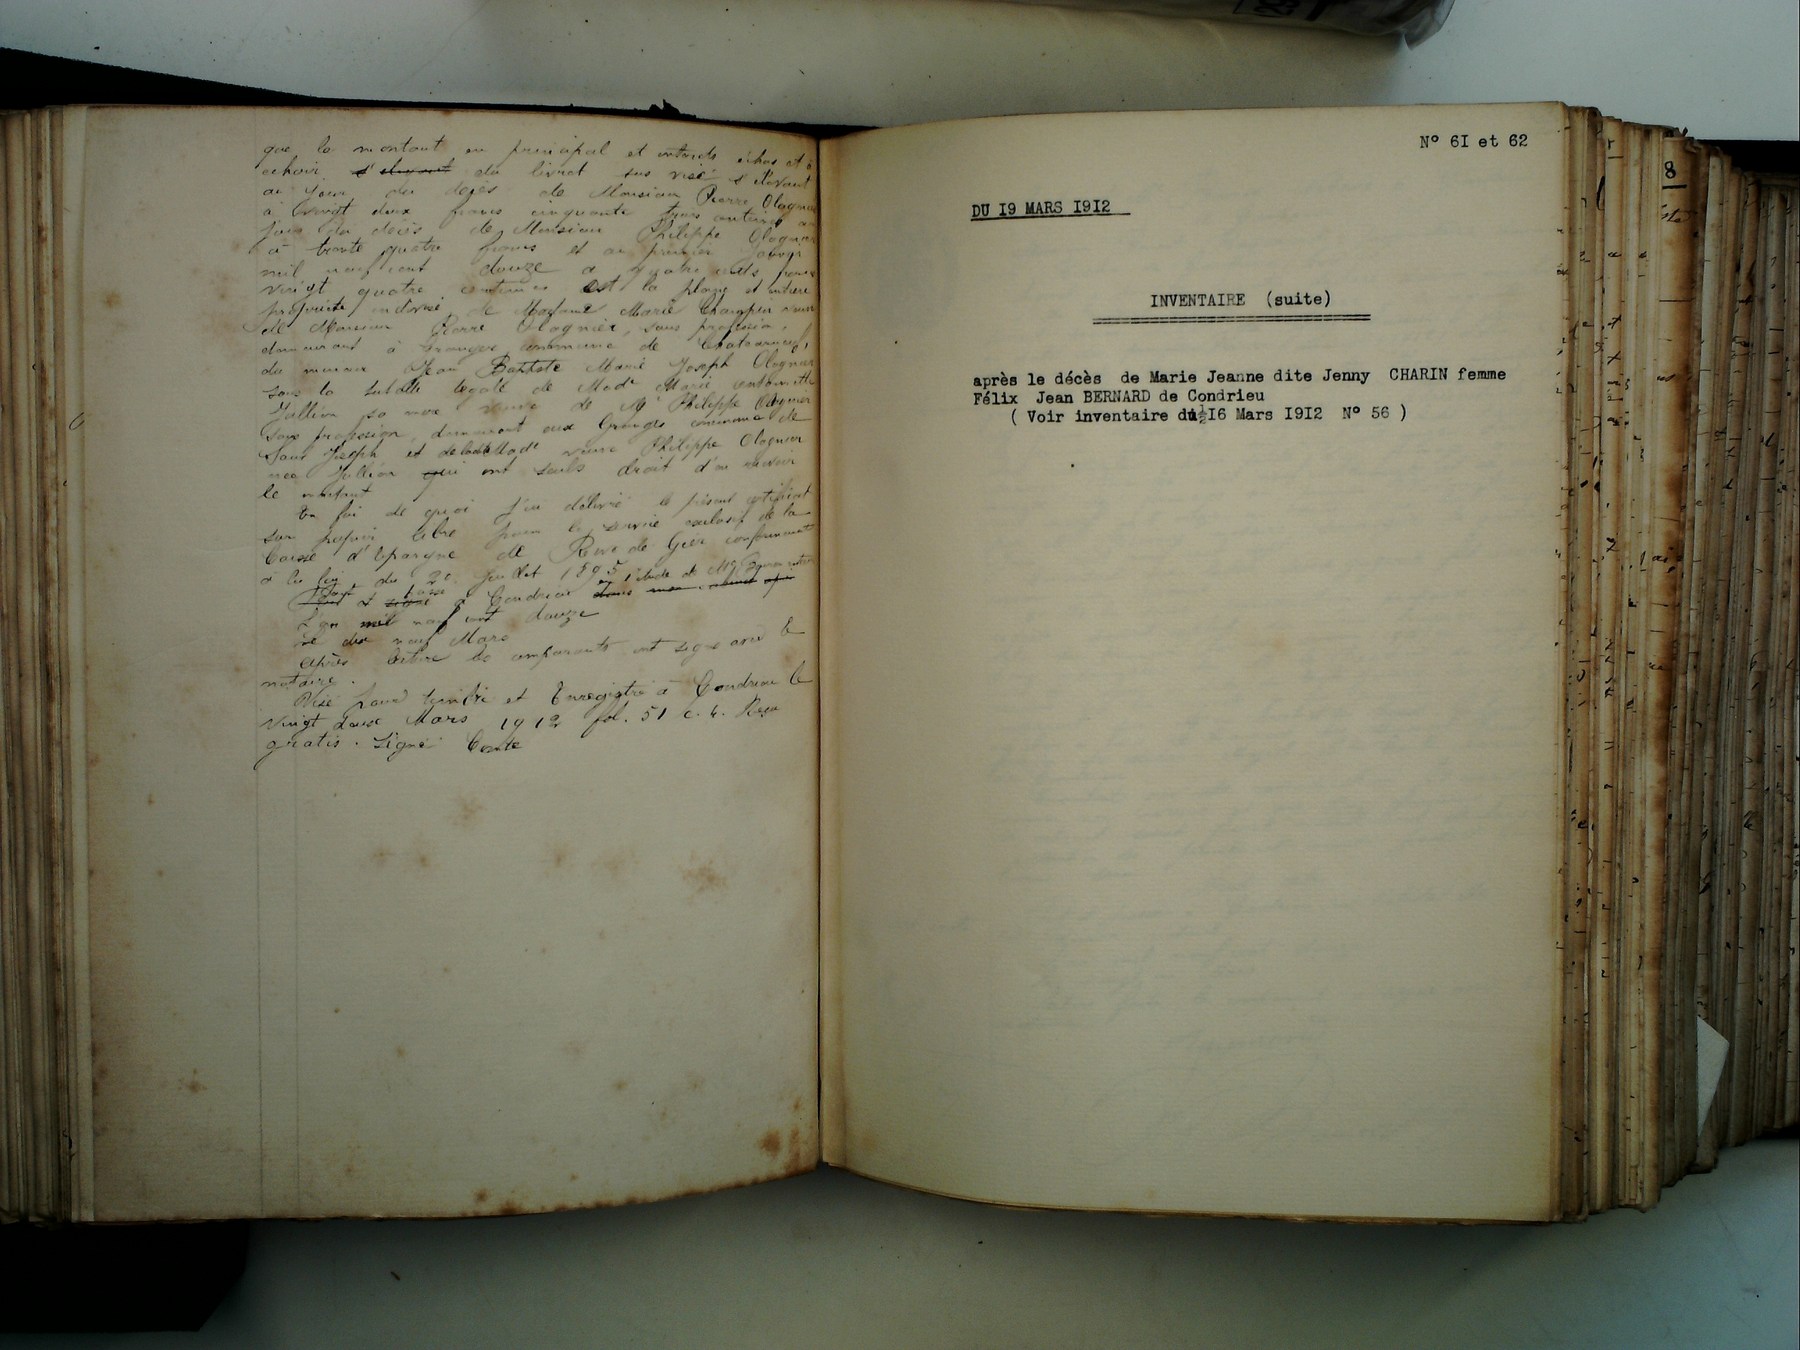 que le montant en principal et intérêts échus et à
échoir s'élevant du livret sus visé s'élevant
au jour du décès de Monsieur Pierre Olagnier
à vingt deux francs cinquante
jour du décès de Monsieur Philippe Olagnier
à trente quatre francs et au premier Janvier
mil neuf cent douze a quatre cents francs
vingt quatre centimes est la pleine et entière
propriété indivise de Madame Marie Champin veuve
de Monsieur Pierre Olagnier, sans profession,
demeurant à Granges commune de
du mineur Jean Baptiste Marie Joseph Olagnier
sous la tutelle légale de Made Marie Antoinette
Jullien sa mère veuve de Mr Philippe Olagnier
sans profession, demeurant aux Granges commune de
Saint Joseph et de ladite Made veuve Philippe Olagnier
née Jullien qui ont seuls droit d'en recevoir
le montant
En foi de quoi j'ai délivré le présent certificat
sur papier libre pour le service exclusif de la
Caisse d'Epargne de Rive de Gier conformément
à la loi du 20 Juillet 1895
Fait et passé à Condrieu en l'étude de Me
L'an mil neuf cent douze
Le dix neuf Mars
Après lecture les comparants ont signé avec le
notaire.
Visé pour timbre et Enregistré à Condrieu le
vingt deux Mars 1912 fol. 51 c. 4. Reçu
gratis. Signé Conte
N° 61 et 62
DU 19 MARS 1912
INVENTAIRE (suite)
après le décès de Marie Jeanne dite Jenny CHARIN femme
Félix Jean BERNARD de Condrieu
( Voir inventaire du 16 Mars 1912 N° 56 )
8